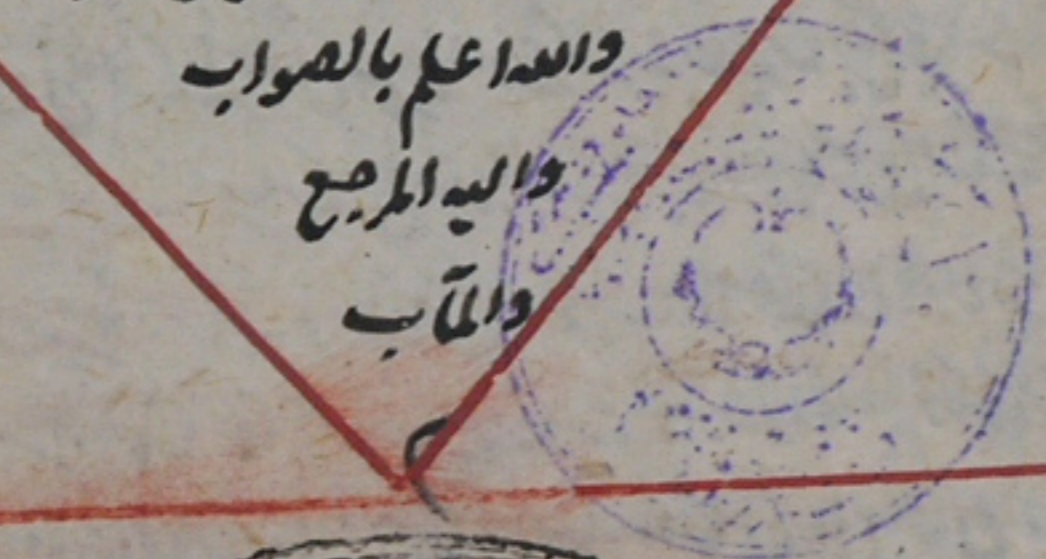 والله اعلم بالصواب
واليه المرجع
والمآب
م